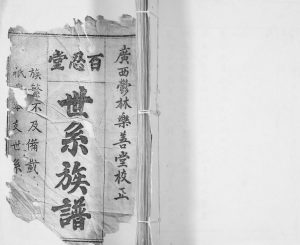 百忍堂
廣西鬱林樂善堂校正
世系族譜
族繁不及備載
祇支世系